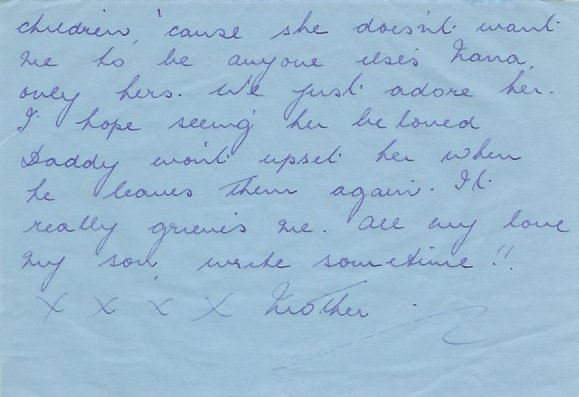 children, 'cause she doesn't want
me to be anyone else's Nana,
only hers. We just adore her.
I hope seeing her beloved
Daddy won't upset her when
he leaves them again. It
really grieves me. All my love
my son, write sometime!!
X X X X Mother.